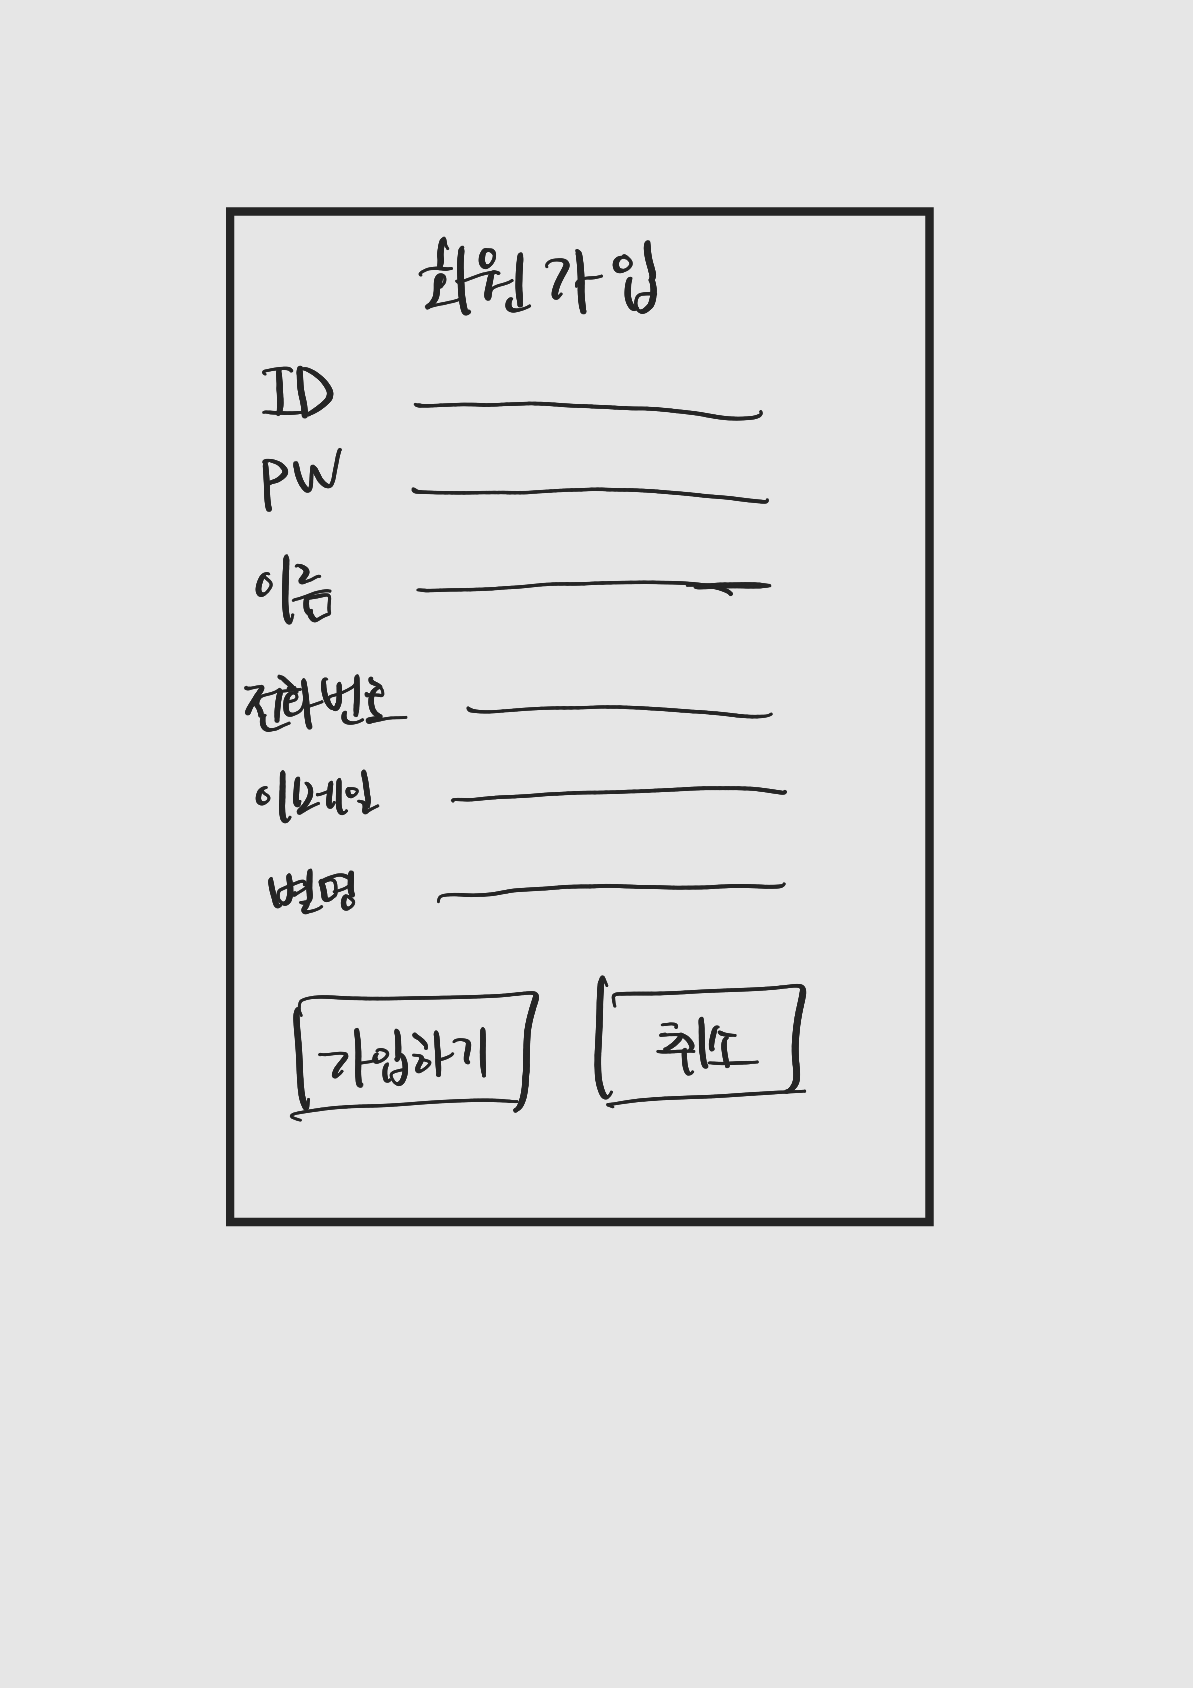 회원가입
ID
PW
이름
전화번호
이메일
별명
가입하기
취소